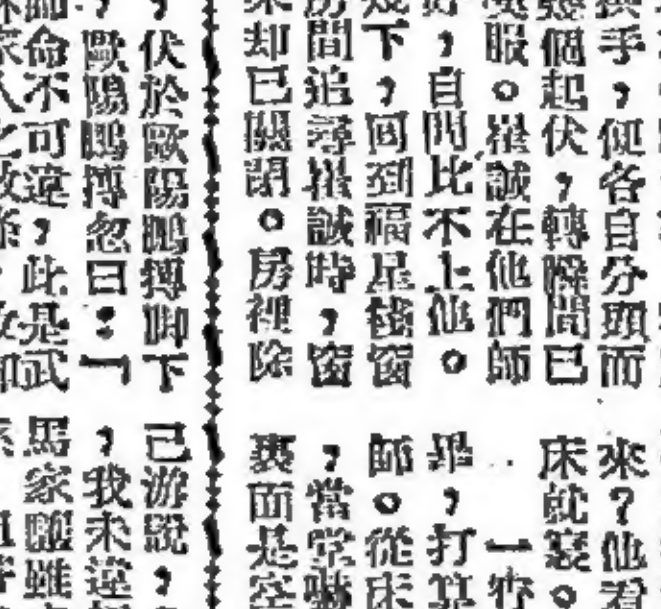 手,但各自分頭而
個起伏,轉瞬間已
眼。崔誠在他們師
,自問比不上他。
下,回到福星棧窗
間追尋崔誠時,窗
却已關閉。房裡除
來?他看
床就寢。
一宿
畢,打算
師。從床
,當堂嚇
裏面是空
伏於歐陽鵬搏脚下
,歐陽鵬搏忽曰:「
命不可違,此是武
已游說,
,我未違
馬家雖